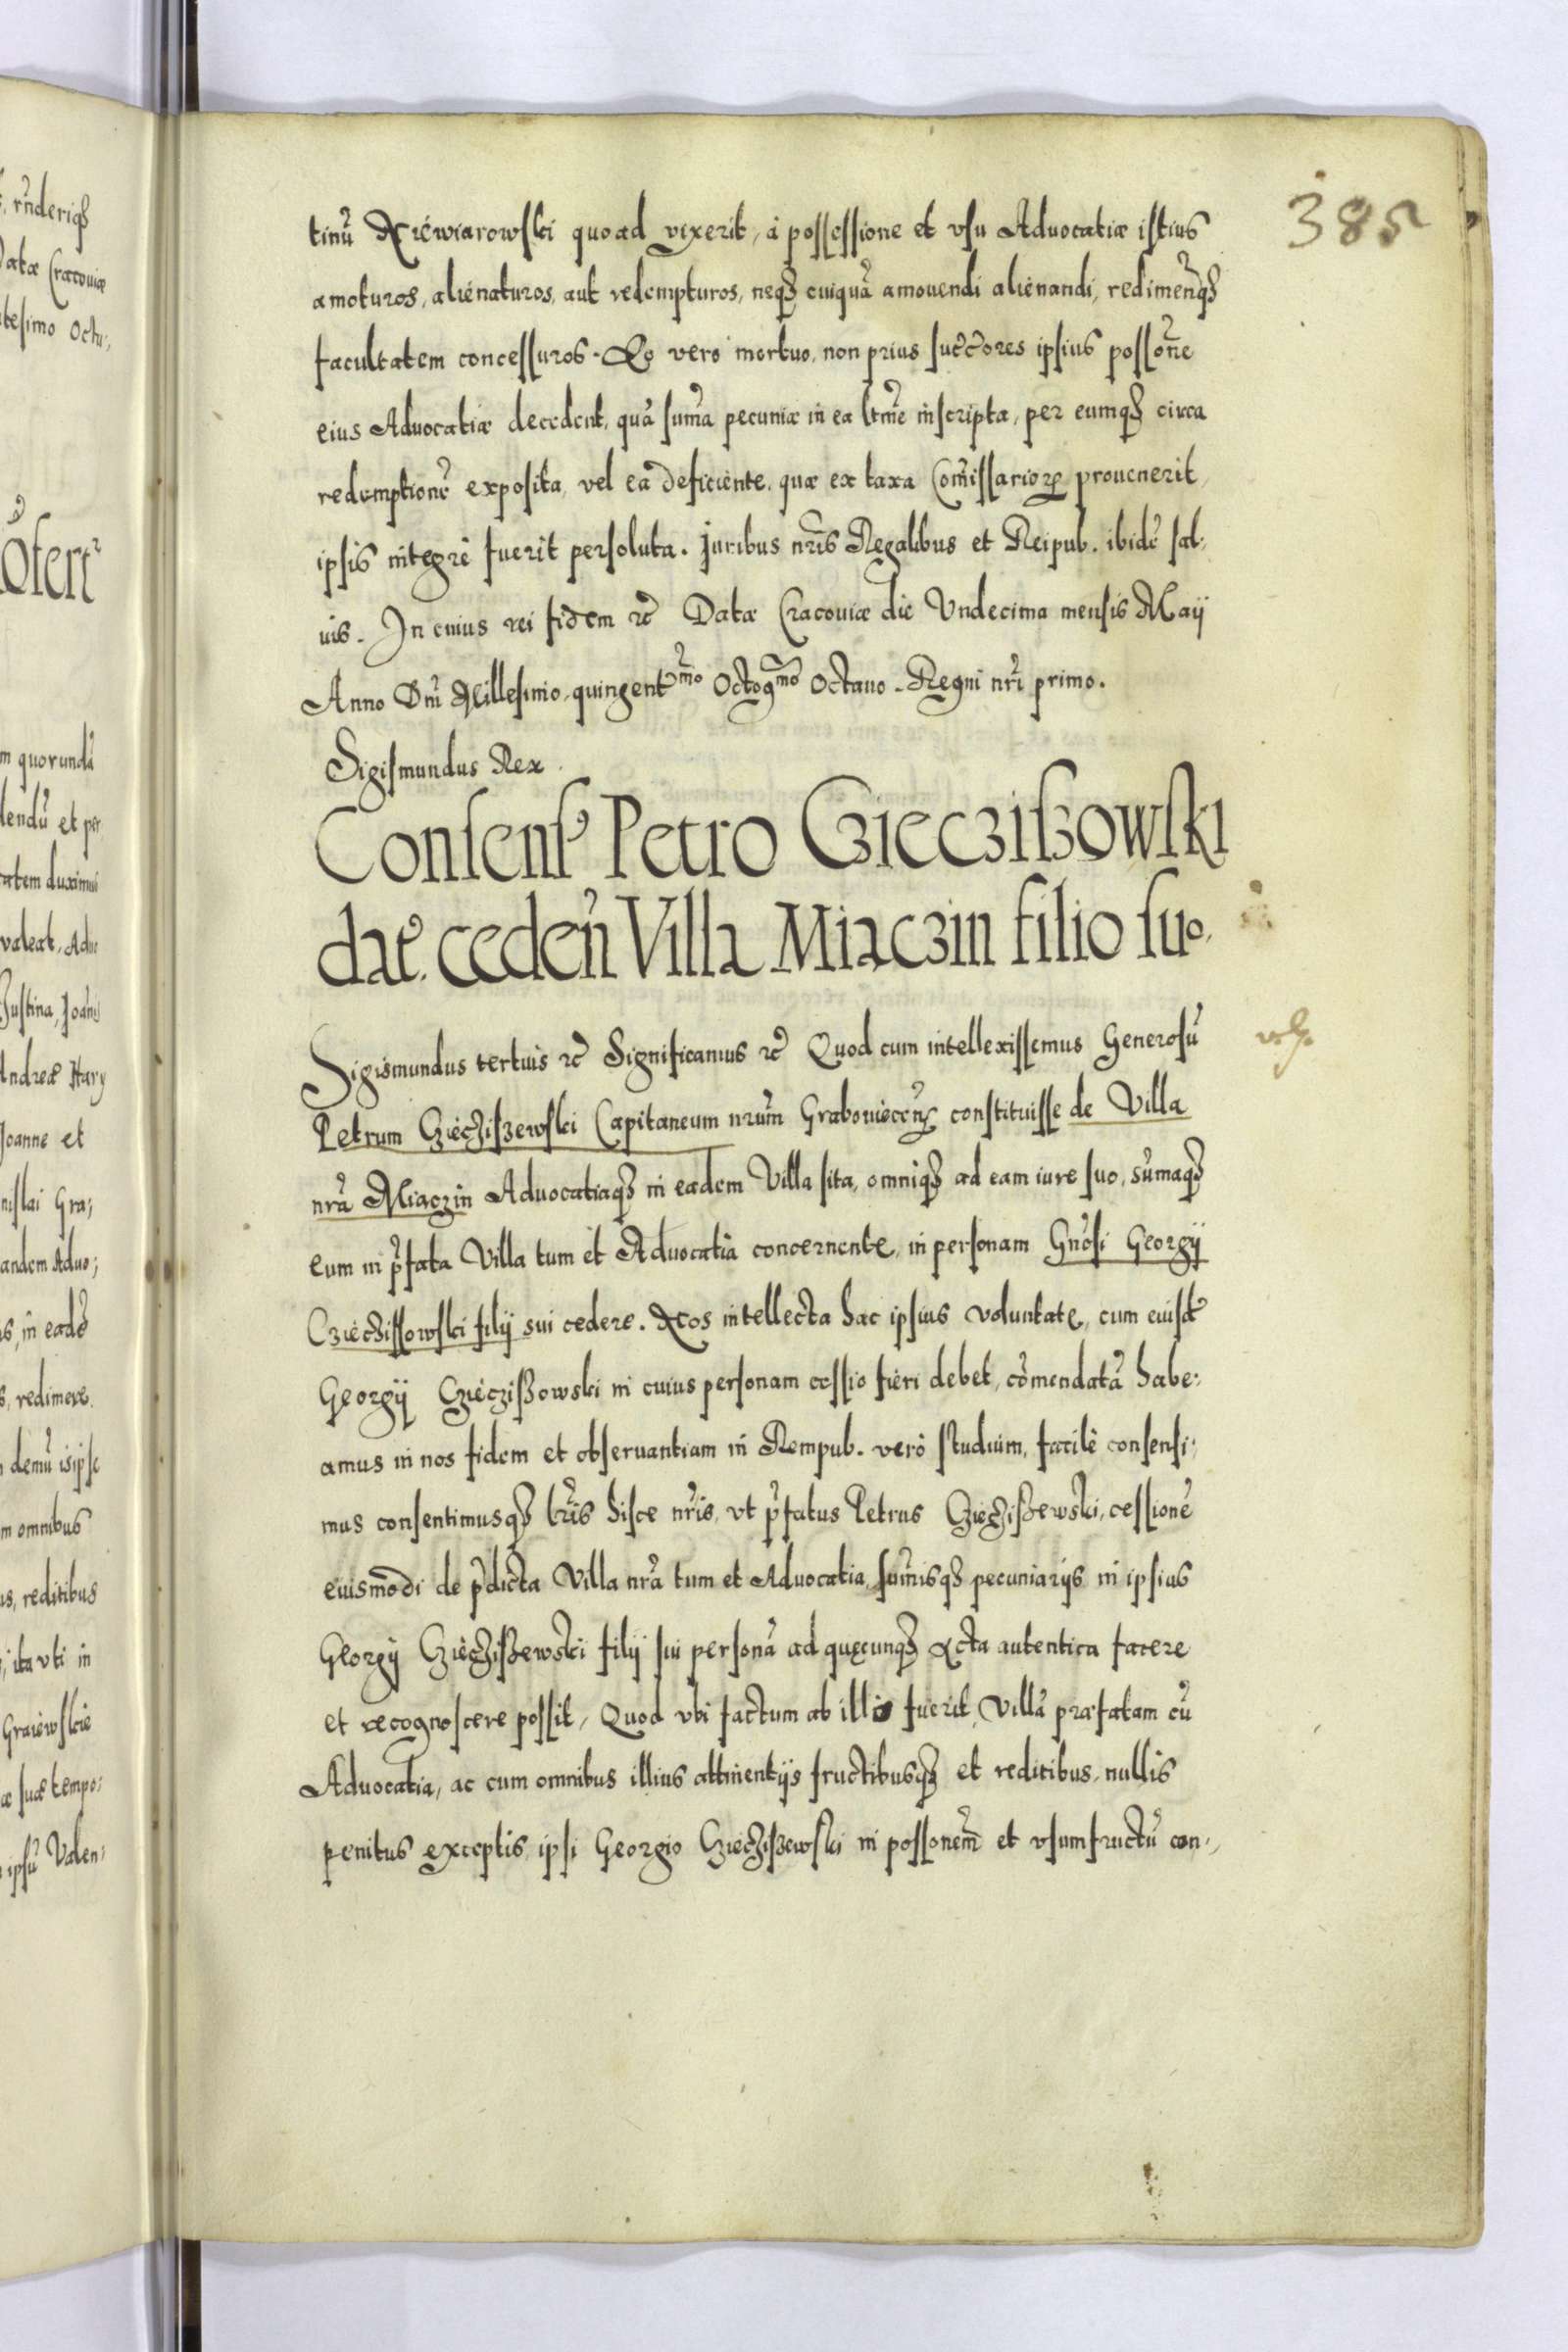 385
tinũ Niéwiarowſki quoad vixerit, à poſſeſſione et vſu Aduocatiæ iſtius
amoturos, alienaturos, aut redempturos, neqꝫ cuiquã amouendi alienandi, redimen̄qꝫ
facultatem conceſſuros. Eo vero mortuo, non prius ſuc̃c̃ores ipſius poſſon̄e
eius Aduocatiæ decedent, quã ſum̃a pecuniæ in ea ltm̃e inſcripta, per eumqꝫ circa
redemptionẽ expoſita, vel ea deficiente, quæ ex taxa Com̃iſſarioꝝ prouenerit,
ipſis integrè fuerit perſoluta. Juribus nr̃is Regalibus et Reipub. ibidẽ ſal,
uis. In cuius rei fidem ꝛc̃ Datæ Cracouiæ die Vndecima menſis Maij
Anno Dn̄i Milleſimo quingent̃mo Octog̃mo Octauo. Regni nr̃i primo.
Sigiſmundus Rex.
Conſenſ⁹ Petro Czieczißowſki
dat⁹. ceden̄ Villa Miaczin filio ſuo.
Sigismundus tertius ꝛc̃ Significamus ꝛc̃ Quod cum intellexiſſemus Generoſũ
Petrum Cziécziſzewſki Capitaneum nr̃um Graboviécen̄ conſtituiſſe de Villa
nr̃a Miaczin Aduocatiaqꝫ in eadem Villa ſita, omniqꝫ ad eam iure ſuo, sum̃aqꝫ
eum in p̃fata Villa tum et Aduocatia concernente, in perſonam Gñoſi Georgij
Cziécziſſowſki filij sui cedere. Nos intellecta hac ipſius voluntate, cum eiuſdẽ
Georgij Cziéczißowski in cuius perſonam ceſſio fieri debet, com̃endatã habe,
amus in nos fidem et obſeruantiam in Rempub. verò ſtudium, facilè conſenſi,
mus conſentimusqꝫ lr̃is hiſce nr̃is, vt p̃fatus Petrus Cziécziſzewſki, ceſſionẽ
euismodi de p̃dicta Villa nr̃a tum et Aduocatia, ſum̃isqꝫ pecuniarijs in ipſius
Georgij Czièczißewski filij ſui perſonã ad quęcunqꝫ Acta autentica facere
et recognoſcere poſſit, Quod vbi factum ab illo fuerit, Villã præfatam cũ
Aduocatia, ac cum omnibus illius attinentijs fructibusqꝫ et reditibus, nullis
penitus exceptis ipſi Georgio Cziécziſzewſki in poſſonem̃ et vſumfructũ con,